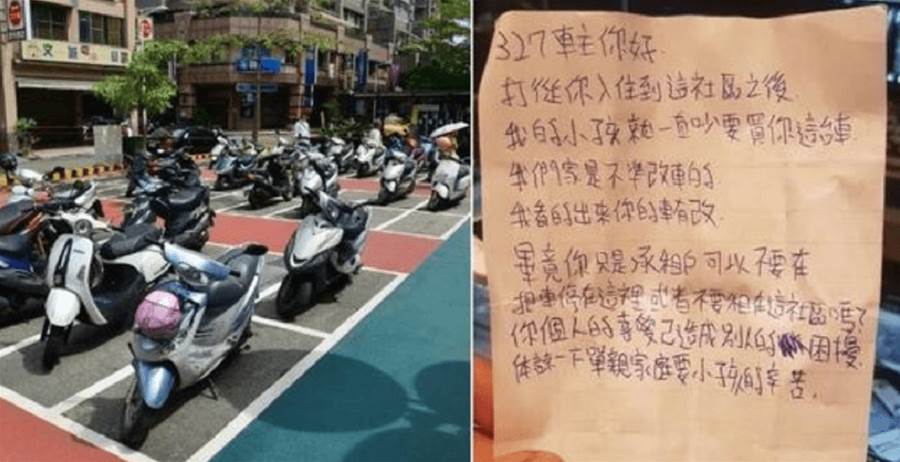 327車主你好.
打從你入住到這社區之後
我的小孩就一直吵要買你這台車
我們家是不準改車的
我看的出來你的車有改.
畢竟你只是承租戶可以不要在
把車停在這裡或者不要租在這社區嗎?
你個人的享受已造成別人的困擾.
体諒一下單親家庭要小孩的辛苦.